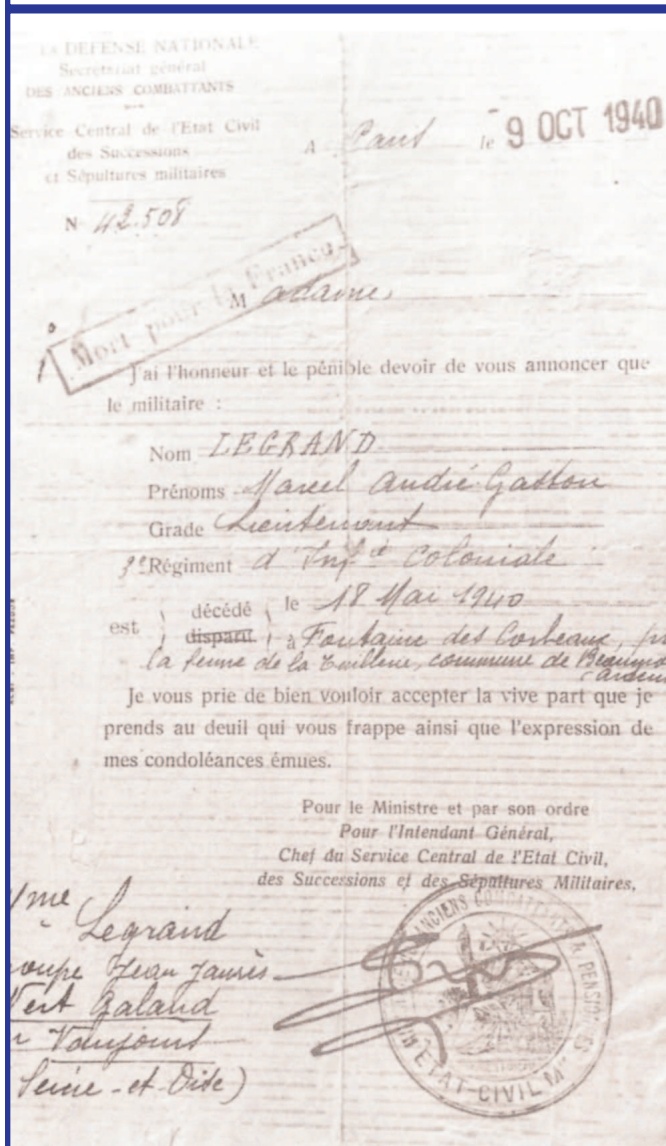 LA DEFENSE NATIONALE
Secrétariat général
DES ANCIENS COMBATTANTS
Service Central de l'Etat Civil
des Successions
et Sépultures militaires
A Paris le 9 OCT 1940
N 42.508
Mort pour la France
Madame,
J'ai l'honneur et le pénible devoir de vous annoncer que
le militaire :
Nom LEGRAND
Prénoms Marcel André Gaston
Grade Lieutenant
3e Régiment d'Infie Coloniale
est décédé disparu le 18 Mai 1940
à Fontaine des Corbeaux,
la ferme de la Tuillerie, commune de
Je vous prie de bien vouloir accepter la vive part que je
prends au deuil qui vous frappe ainsi que l'expression de
mes condoléances émues.
Pour le Ministre et par son ordre
Pour l'Intendant Général,
Chef du Service Central de l'Etat Civil,
des Successions et des Sépultures Militaires,
Mme Legrand
Jean Jaurès
Vert Galand
Vaujours
(Seine-et-Oise)
ANCIENS COMBATTANTS & PENSIONS
ETAT-CIVIL Mre